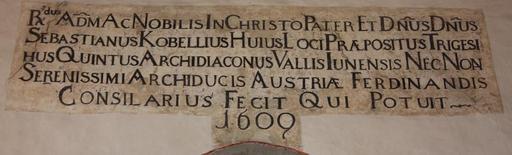 Rᵈᵘˢ ADM AC NOBILIS IN CHRISTO PATER ET DÑUS DÑUS
SEBASTIANUS KOBELLIUS HUIUS LOCI PRÆPOSITUS TRIGESI
HUS QUINTUS ARCHIDIACONUS VALLIS IUNENSIS NEC NON
SERENISSIMI ARCHIDUCIS AUSTRIÆ FERDINANDIS
CONSILARIUS FECIT QUI POTUIT
1609